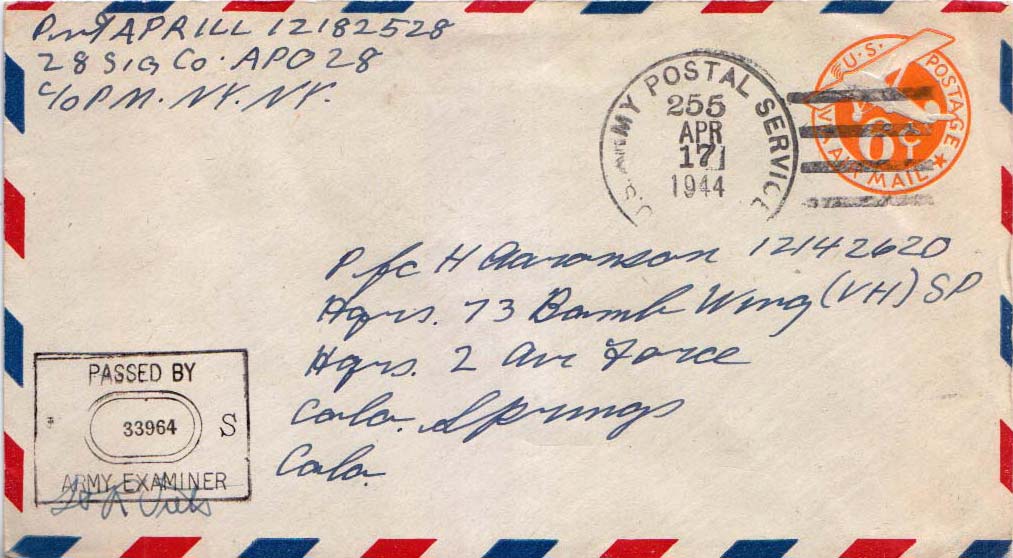 Pvt APRILL 12182528
28 Sig Co. APO 28
c/o PM. NY. NY.
U.S. ARMY POSTAL SERVICE
255
APR
17
1944
U.S. POSTAGE
6¢
VIA AIR MAIL
Pfc H Aaronson 12142620
Hqrs. 73 Bomb Wing (VH) SP
Hqrs. 2 Air Force
Colo. Springs
Colo.
PASSED BY
33964 S
ARMY EXAMINER